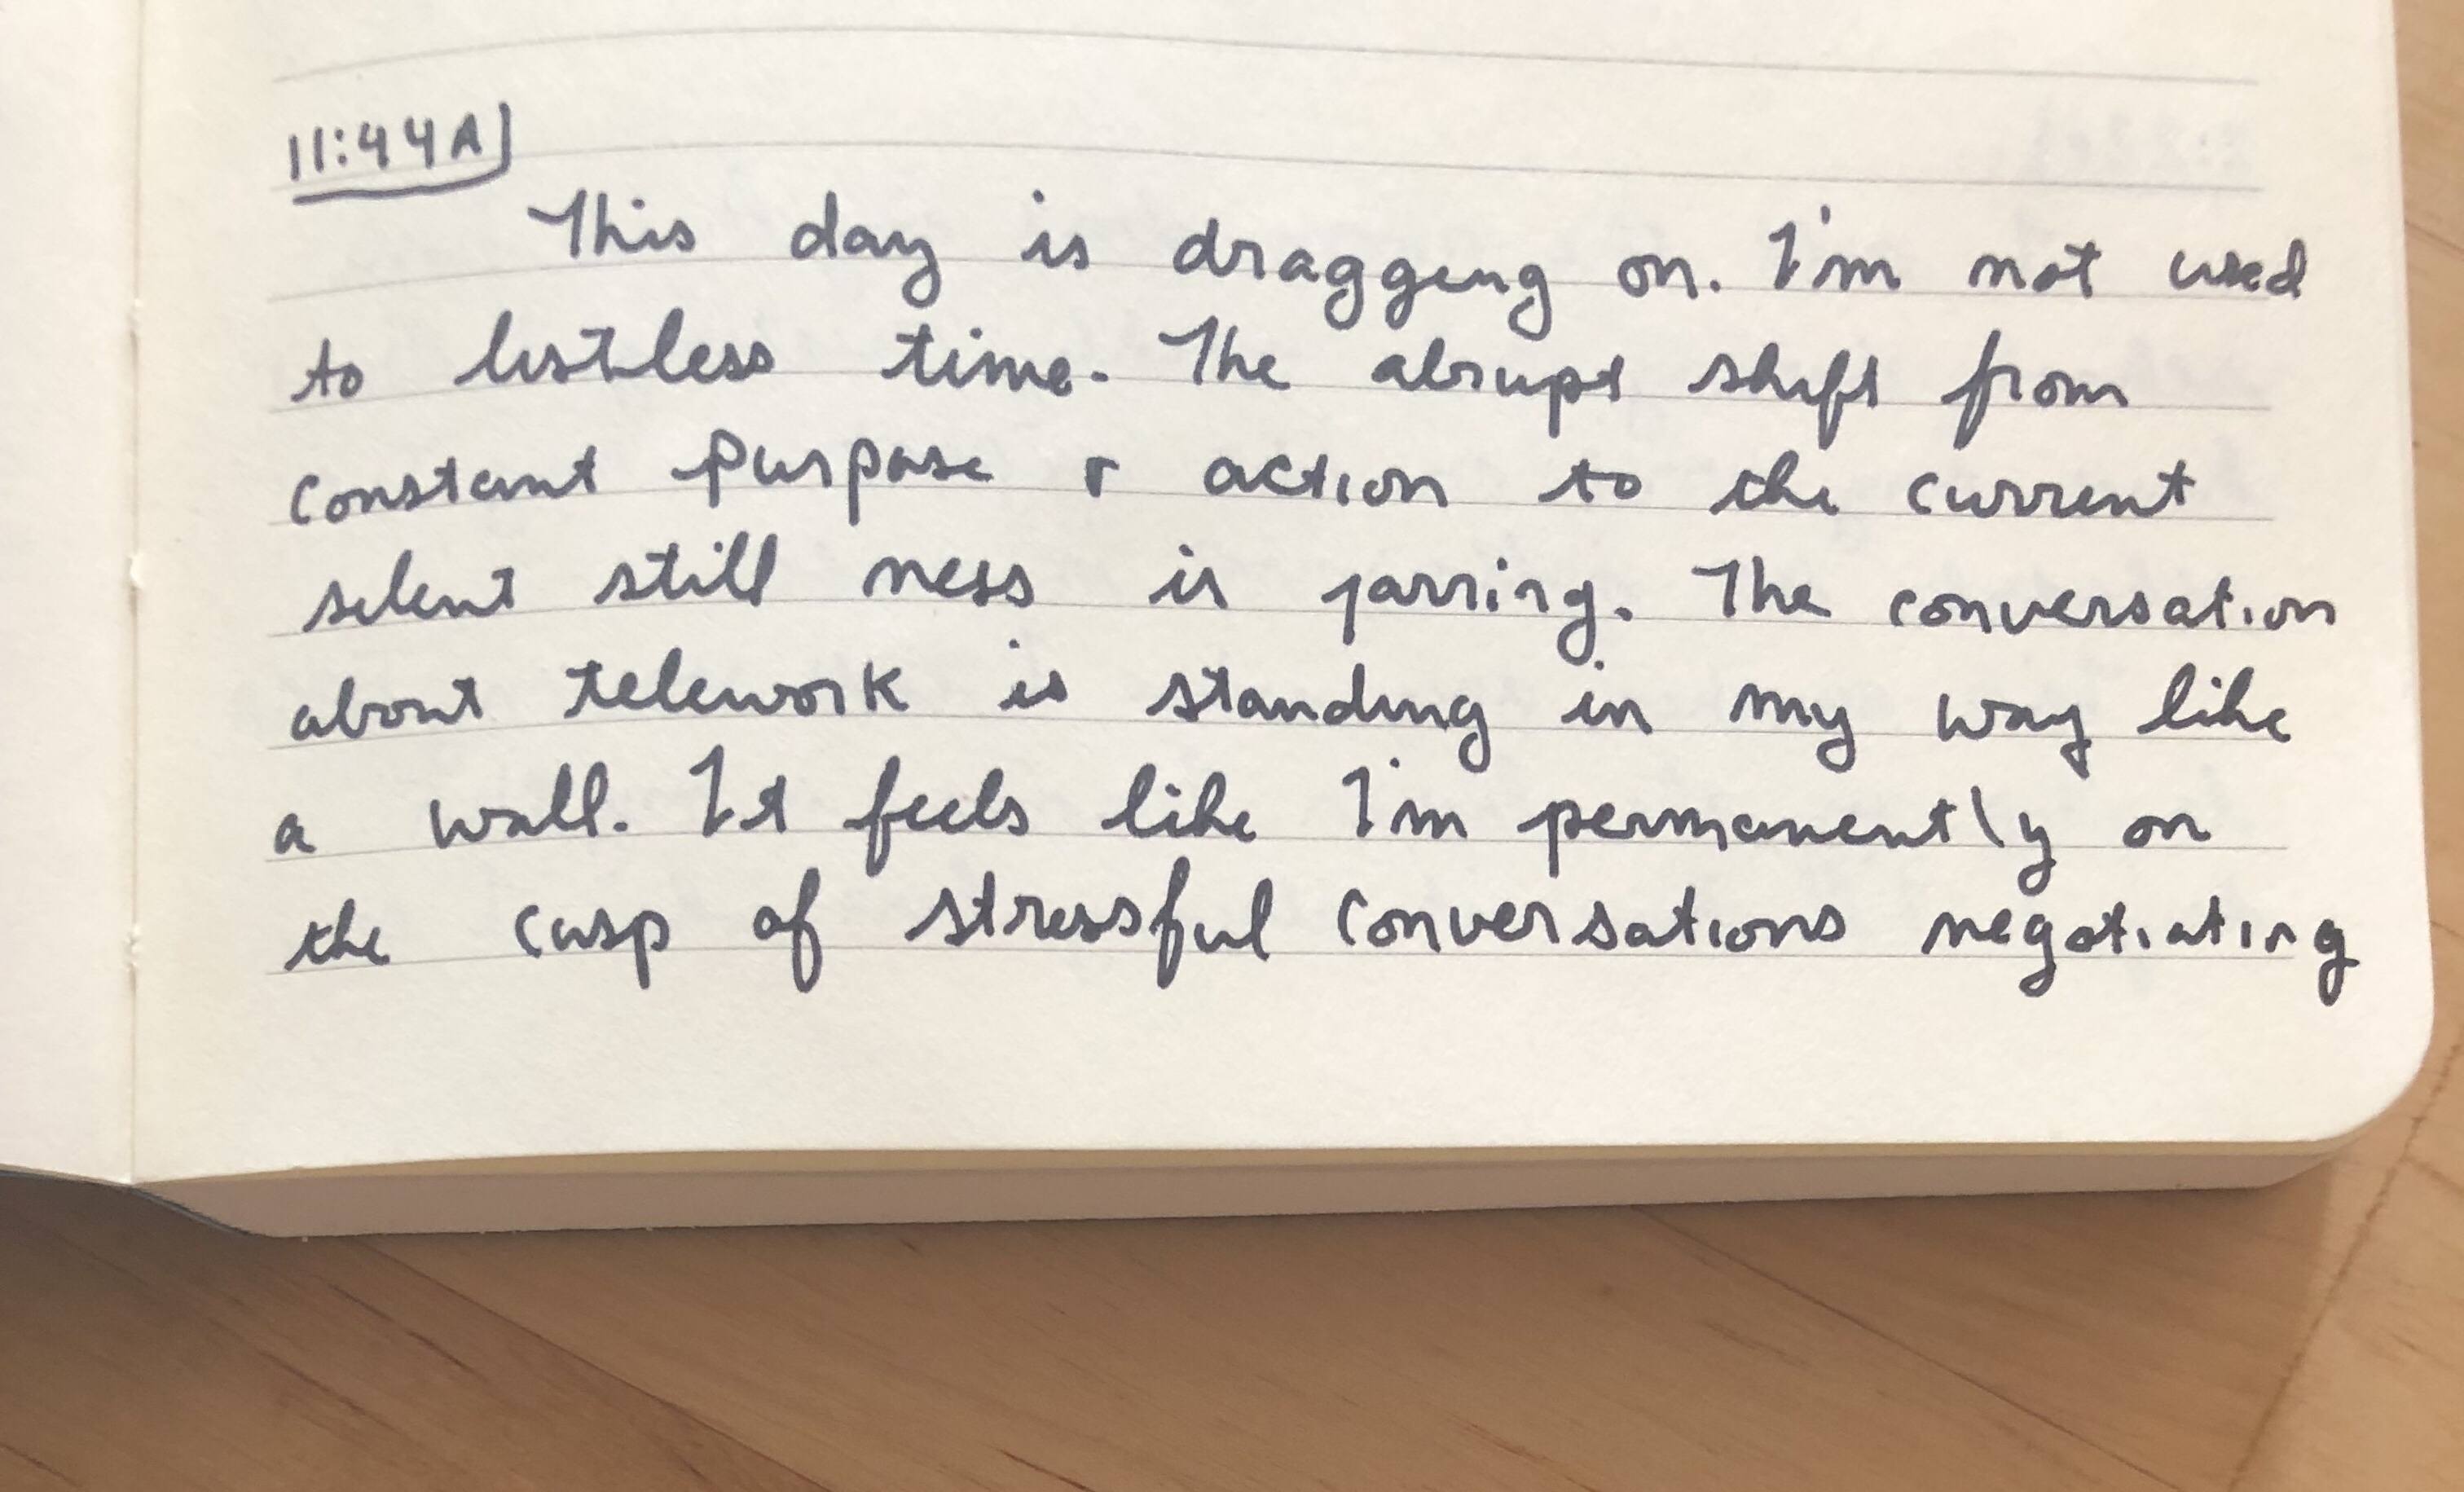 11:44A
This day is dragging on. I'm not used
to listless time. The abrupt shift from
constant purpose & action to the current
silent still ness is jarring. The conversation
about telework is standing in my way like
a wall. It feels like I'm permanently on
the cusp of stressful conversations negotiating